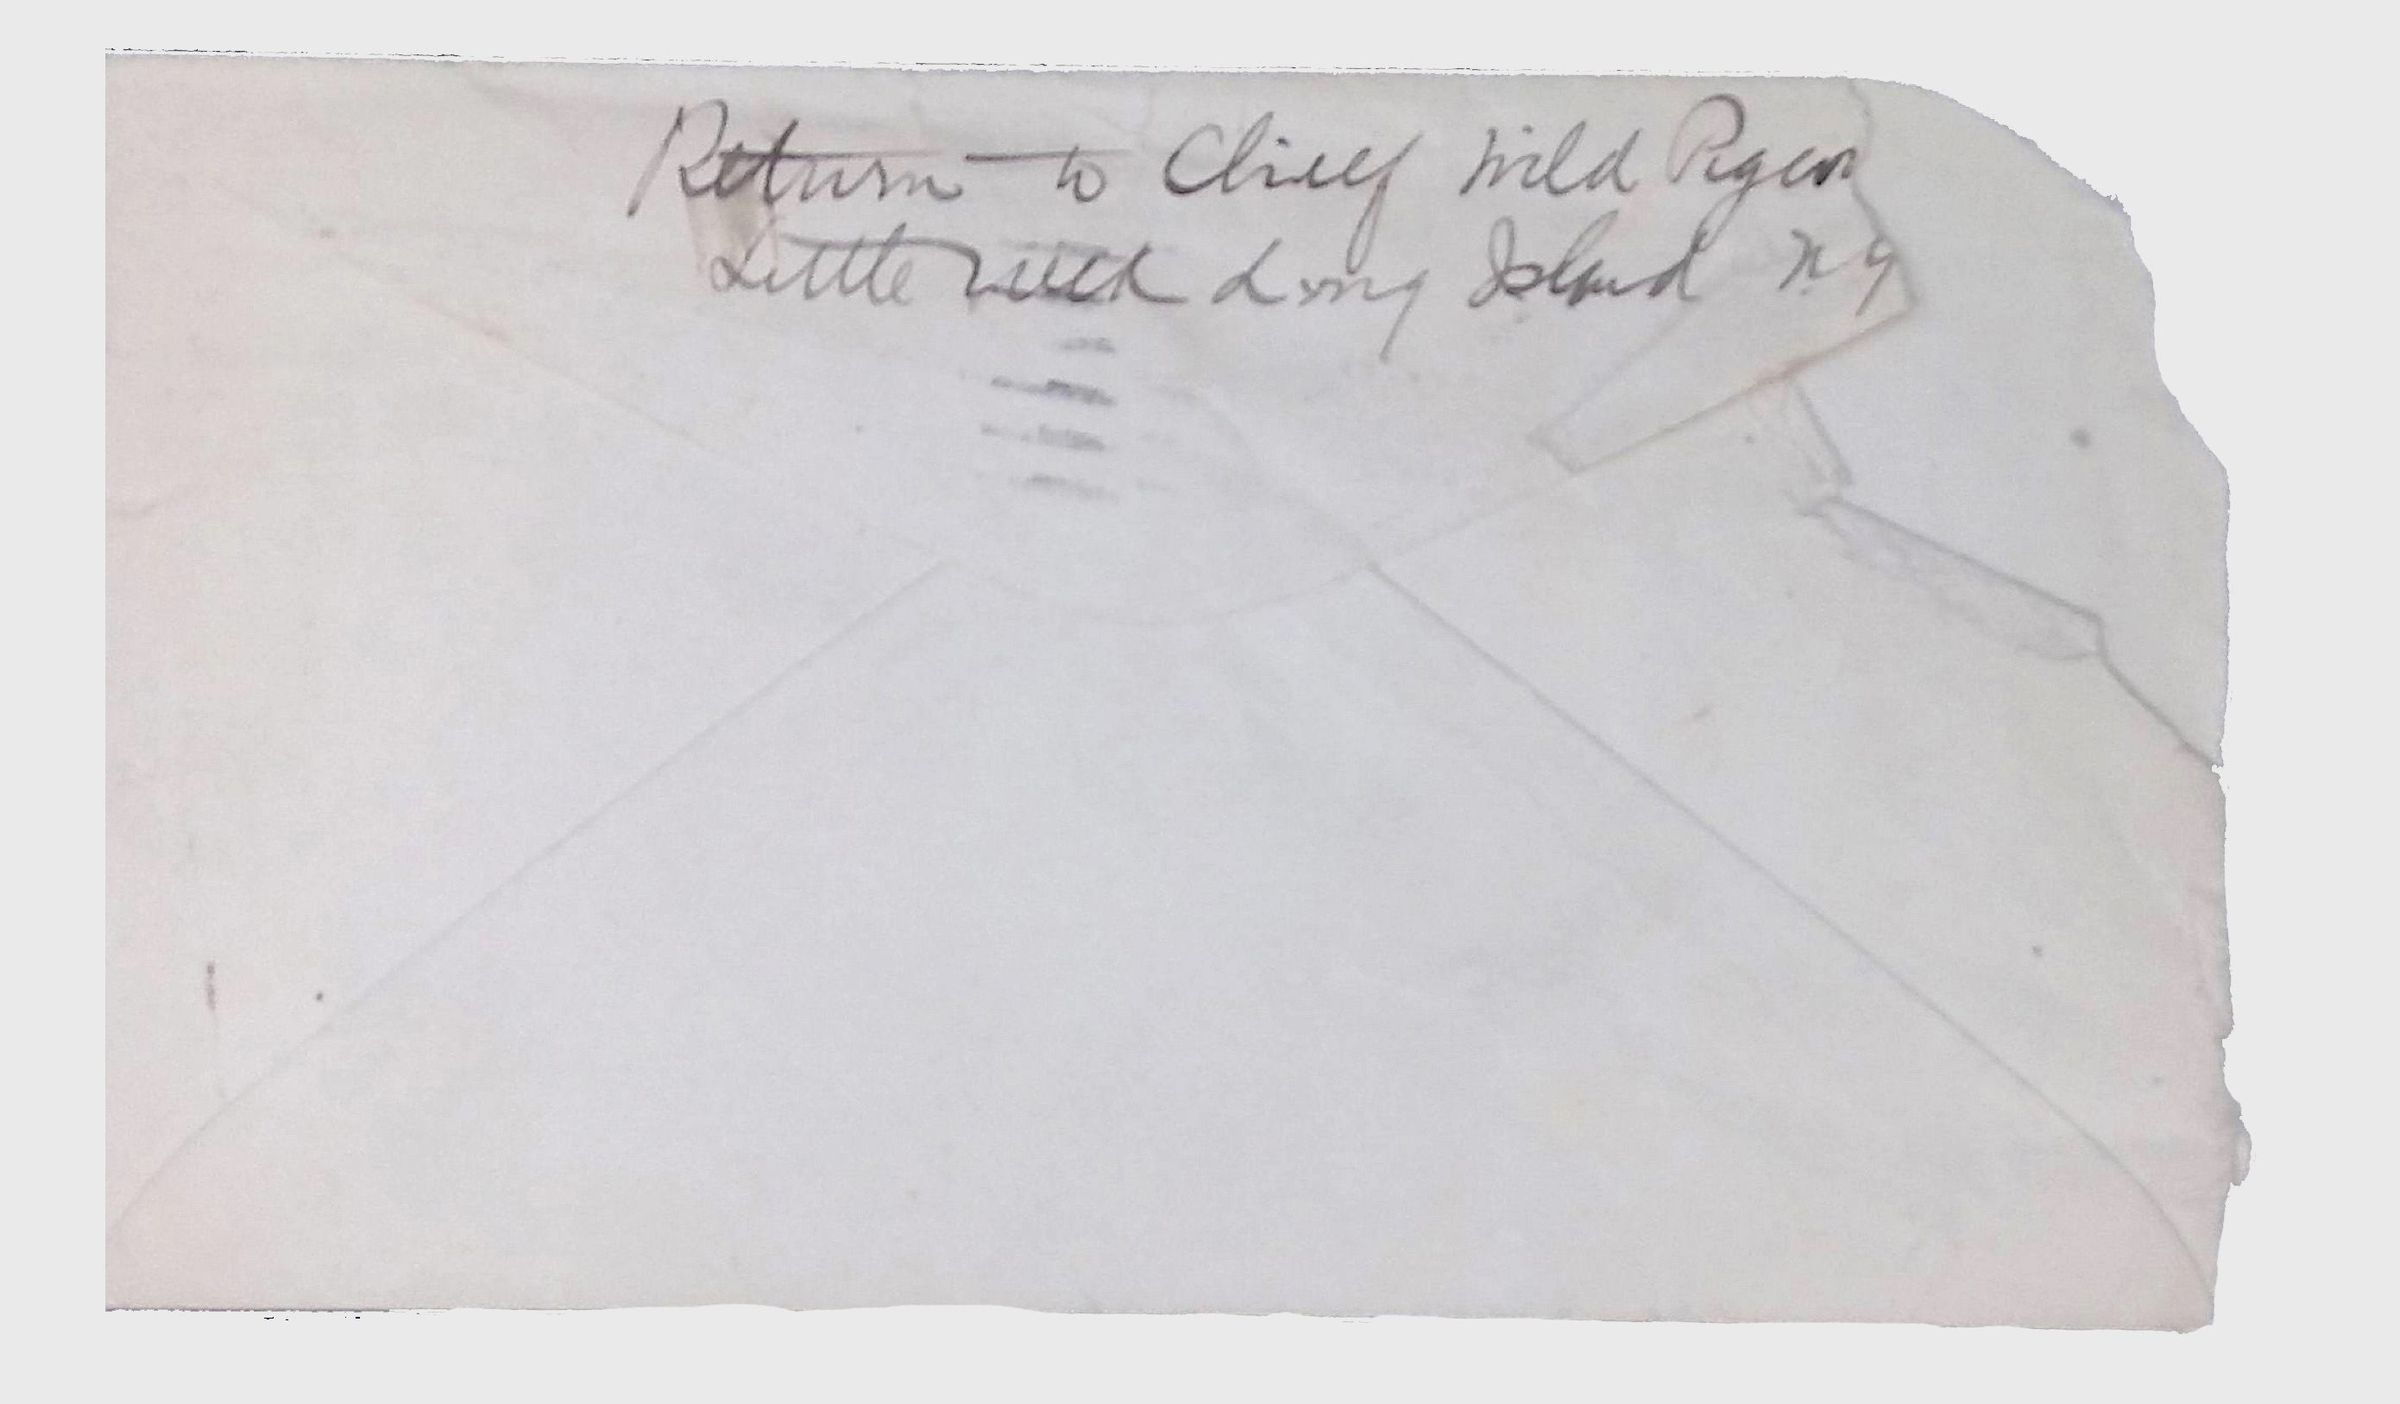 Return to Chief Wild Pigeon
Little Neck Long Island NY